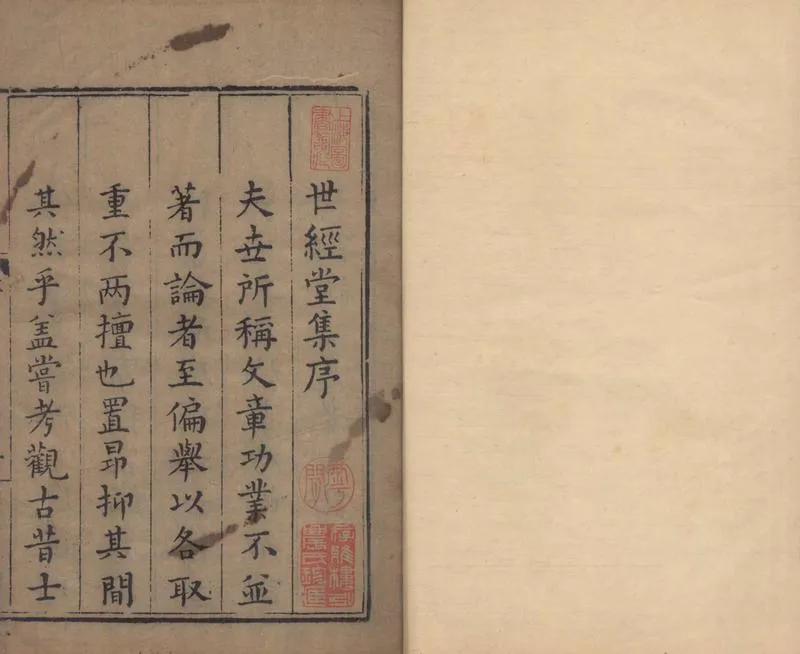 世經堂集序
夫世所稱文章功業不並
著而論者至偏舉以各取
重不两擅也置昂抑其間
其然乎盖嘗考觀古昔士